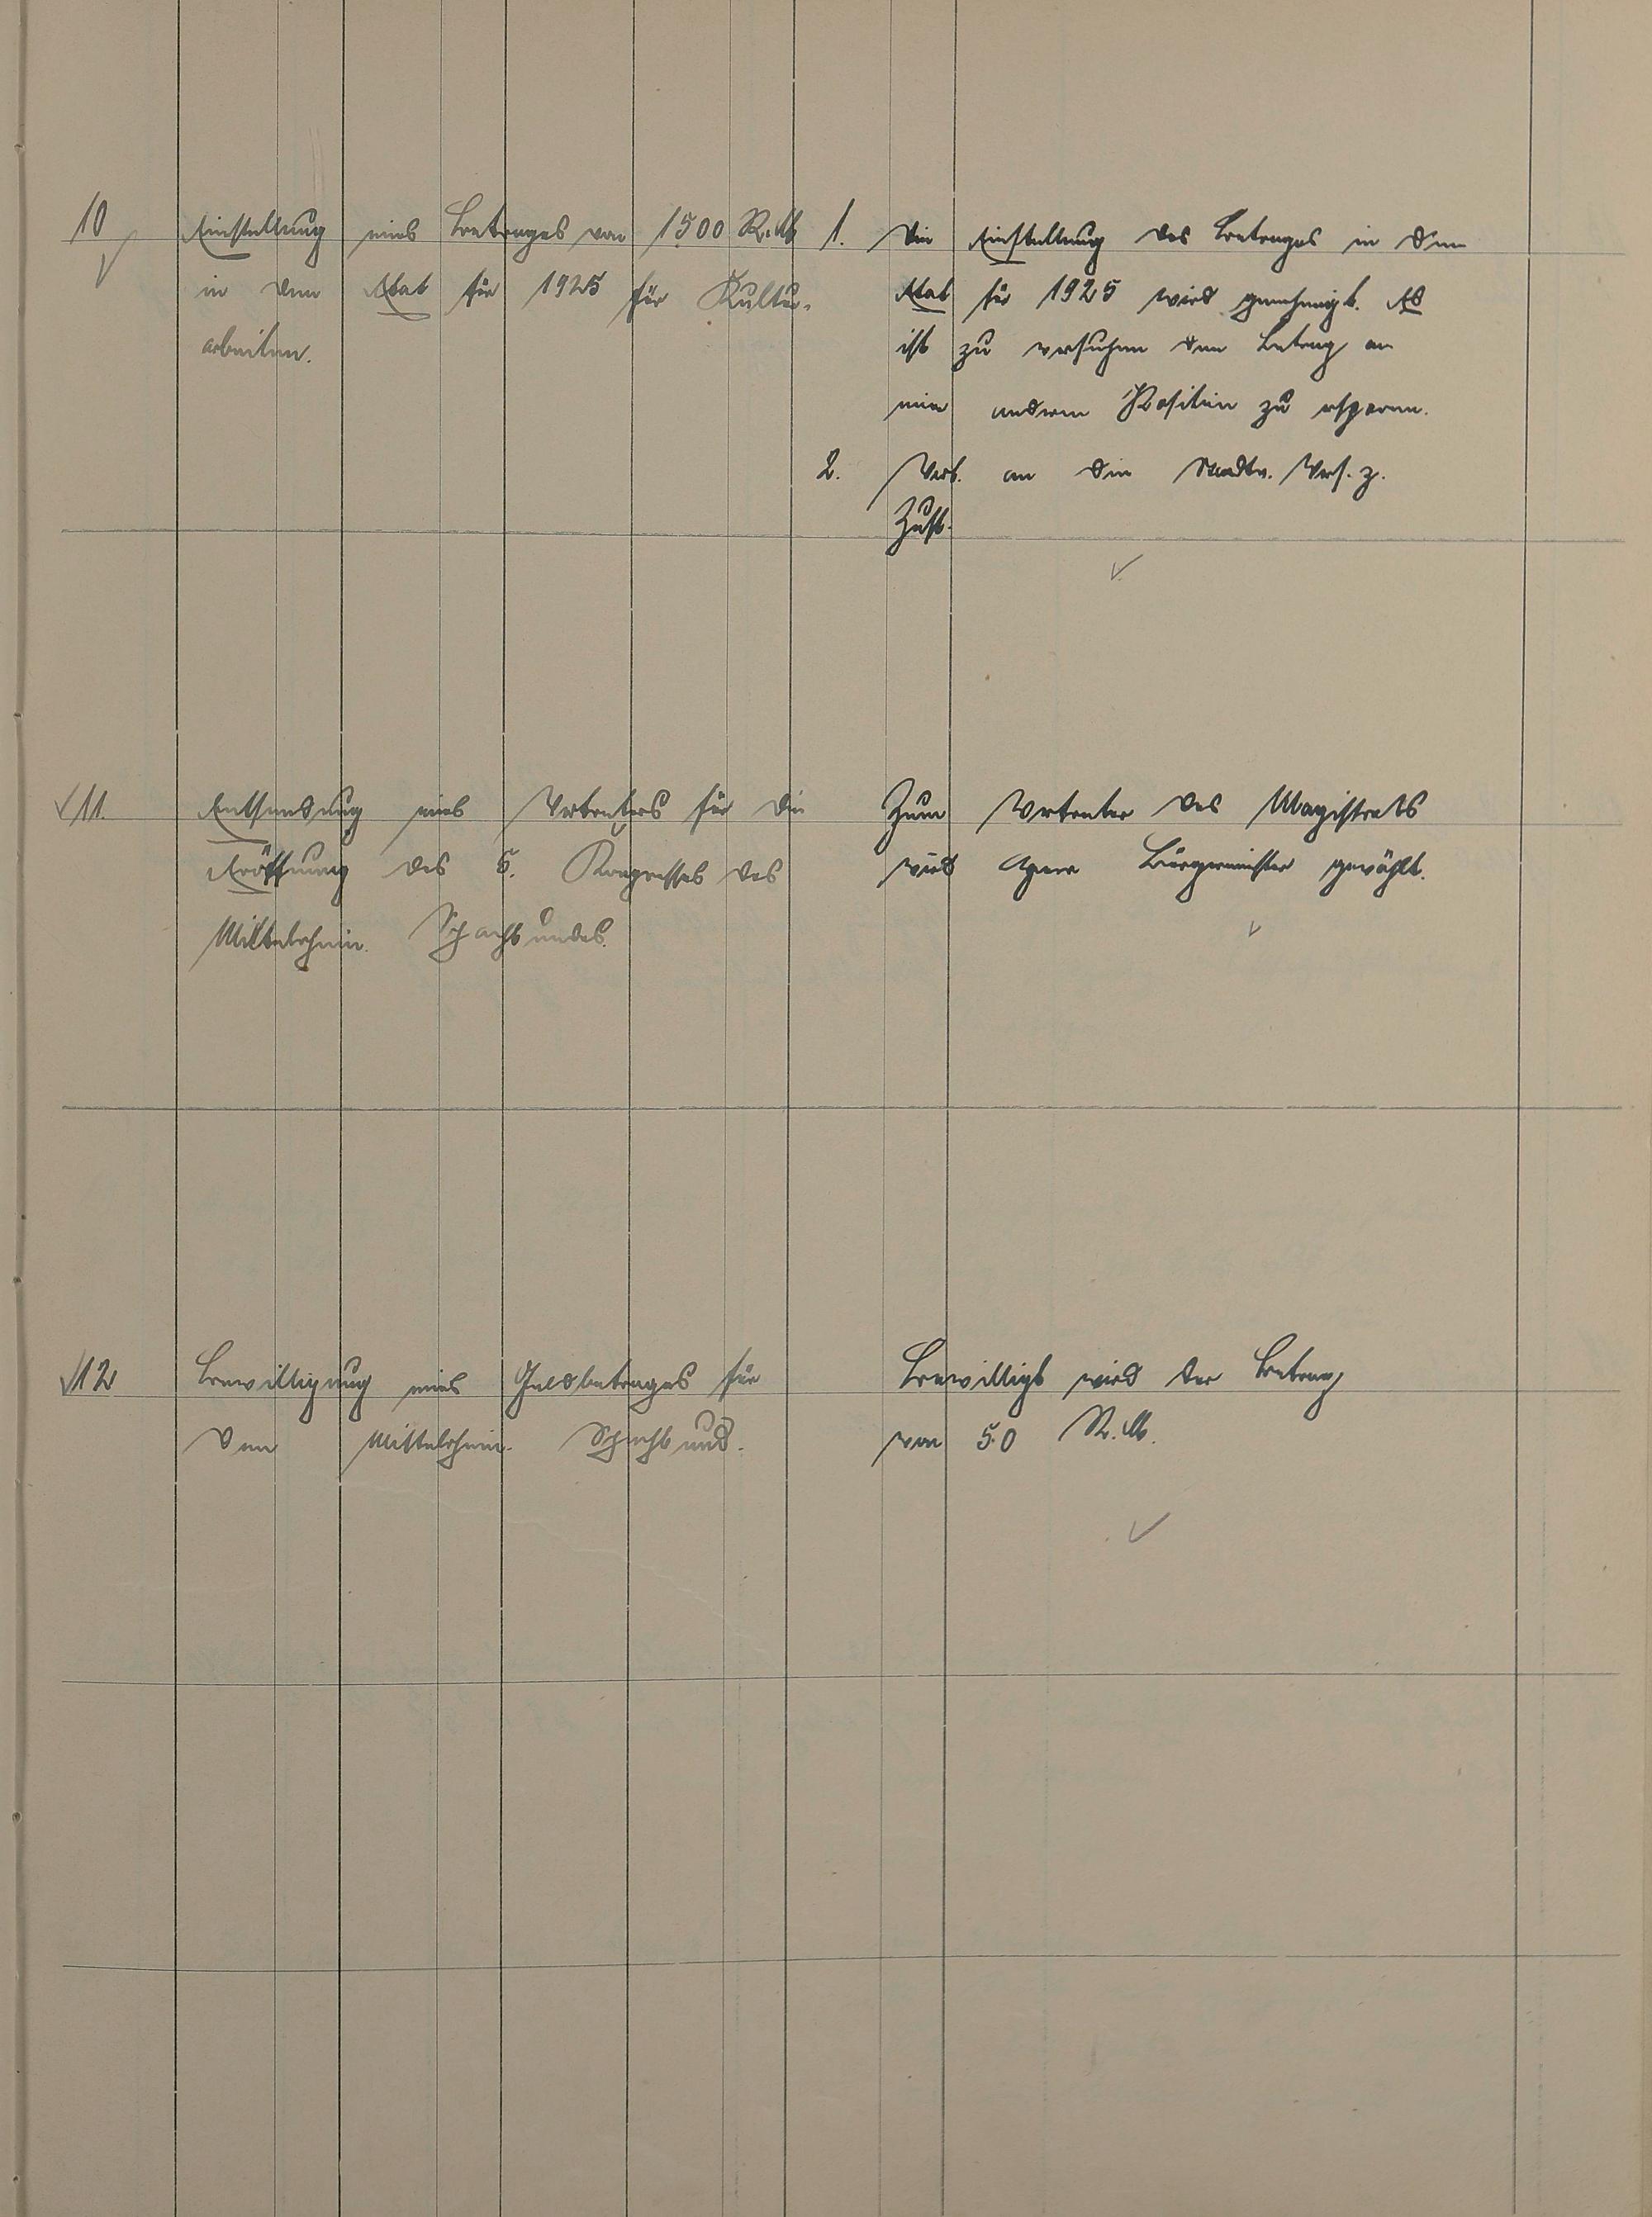 10
Einstellung eines Betrages von 1500 R.M
in den Etat für 1925 für Kultur-
arbeiten.
1. Die Einstellung des Betrages in den
Etat für 1925 wird genehmigt. Es
ist zu versuchen den Betrag an
einer anderen Position zu ersparen.
2. Vorl. an die Stadtv. Vers. z.
Zust.
11.
Entsendung eines Vertreters für die
Eröffnung des 5. Kongresses des
Mittelrhein. Schachbundes.
Zum Vertreter des Magistrats
wird Bürgermeister gewählt.
12
Bewilligung eines Geldbetrages für
den Mittelrhein. Schachbund.
Bewilligt wird der Betrag
von 50 R.M.